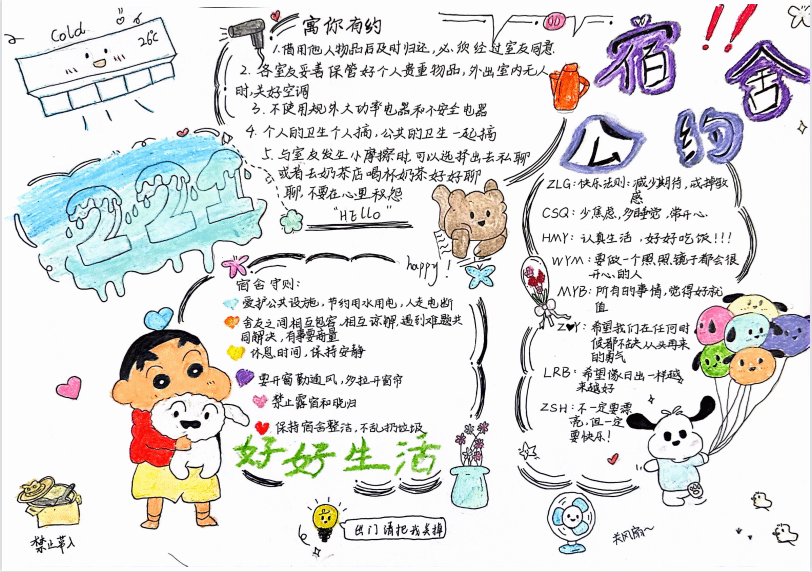 Cold
26℃
寓你有约
1.借用他人物品后及时归还，必须经过室友同意
2. 各室友妥善保管好个人贵重物品，外出室内无人
时，关好空调
3. 不使用规外大功率电器和不安全电器
4. 个人的卫生个人搞，公共的卫生一起搞
5. 与室友发生小摩擦时，可以选择出去私聊
或者去奶茶店喝杯奶茶好好聊
聊，不要在心里积怨
"HEllo"
宿舍
公约
221
happy!
宿舍守则：
爱护公共设施，节约用水用电，人走电断
舍友之间相互包容，相互谅解，遇到难题共
同解决，有事要商量
休息时间，保持安静
要开窗勤通风，多拉开窗帘
禁止露宿和晚归
保持宿舍整洁，不乱扔垃圾
好好生活
ZLG：快乐法则：减少期待，戒掉敏
感
CSQ：少焦虑，多睡觉，常开心.
HMY：认真生活，好好吃饭!!!
WYM：要做一个照照镜子都会很
开心的人
MYB：所有的事情，觉得好就
值
ZY：希望我们在任何时
候都不缺从头再来
的勇气
LRB：希望像日出一样越
来越好
ZSH：不一定要漂
亮，但一定
要快乐！
禁止带入
出门请把我关掉
关风扇～